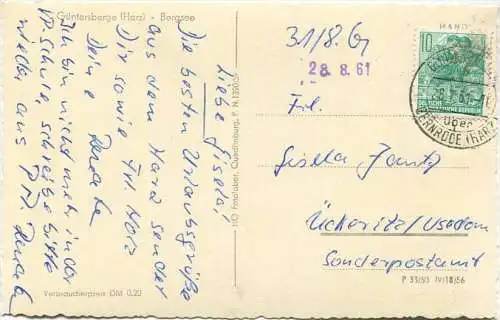 Güntersberge (Harz) - Bergsee
Liebe Gisela!
Die besten Urlaubsgrüße
aus dem Harz sendet
Dir sowie Frl.
Deine Renate
Ich bin nicht mehr in der
VP-Schule, schreibe bitte
wieder aus P.M. Renate
Verbraucherpreis DM 0,20
HO Fotolaber, Quedlinburg, P. N. 1390/55
31/8. 61
28. 8. 61
Frl.
Gisela
Ückeritz/Usedom
Sonderpostamt
P 33/53 IV/18/56
HAND
10
DEUTSCHE
DEMOKRATISCHE REPUBLIK
über
GERNRODE (HARZ)